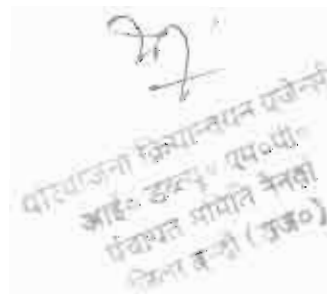 परियोजना क्रियान्वयन एजेन्सी
आई० डब्लू० एम०पी०
पंचायत समिति नैनवां
जिला बून्दी (राज०)